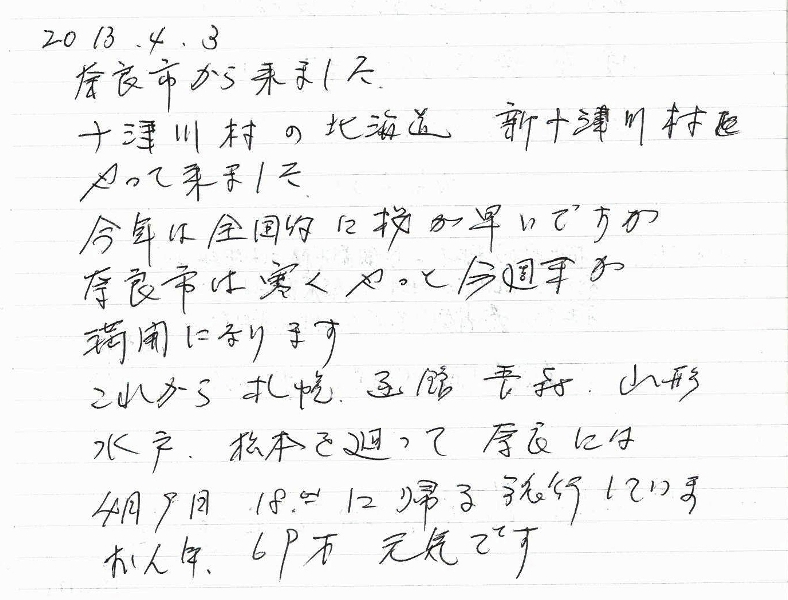 2013.4.3
奈良市から来ました
十津川村の北海道 新十津川村に
やって来ました
今年は全国的に桜が早いですが
奈良市は寒くやっと今週末が
満開になります
これから札幌.函館 青森.山形
水戸.松本を廻って奈良には
4月9日 18:00に帰る旅行しています
69才 元気です